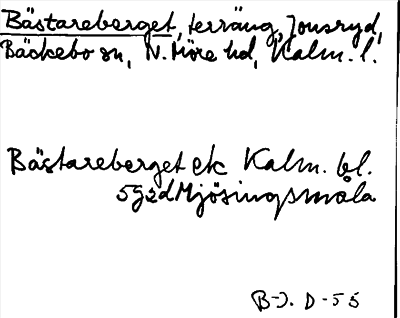 Bästareberget, terräng, Jonsryd,
Bäckebo sn, N. Möre hd, Kalm. l.
Bästareberget ek Kalm. bl.
5g2d Mjösingsmåla
B-J. D-55